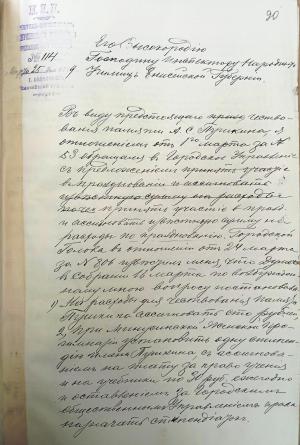 30
М. Н. П.
№ 114
25
Его Высокородию
Господину Инспектору Народных
Училищ Енисейской Губернии
Въ виду предстоящаго чество-
ванія памяти А. С. Пушкина, я
отношеніемъ отъ 1го марта за №
53 обращался въ Городское Управленіе
съ предложеніемъ принять участіе
въ празднованіи и ассигновать
принять участіе въ
и ассигновать сумму на
расходы по празднованію. Городской
Голова въ отношеніи отъ 24 марта
за № 806 увѣдомилъ меня, что Дума
въ Собраніи 16 марта по возбужден-
ному мною вопросу постановила:
1) На расходы для чествованія памяти
Пушкина ассигновать сто рублей
2) При Минусинской Женской Про-
гимназіи установить одну стипен-
дію имени Пушкина съ ассигнова-
ніемъ на плату за право ученія
и на учебники по 30 руб. ежегодно
и оставленіемъ за Городскимъ
общественнымъ Управленіемъ права
назначать стипендіатокъ.